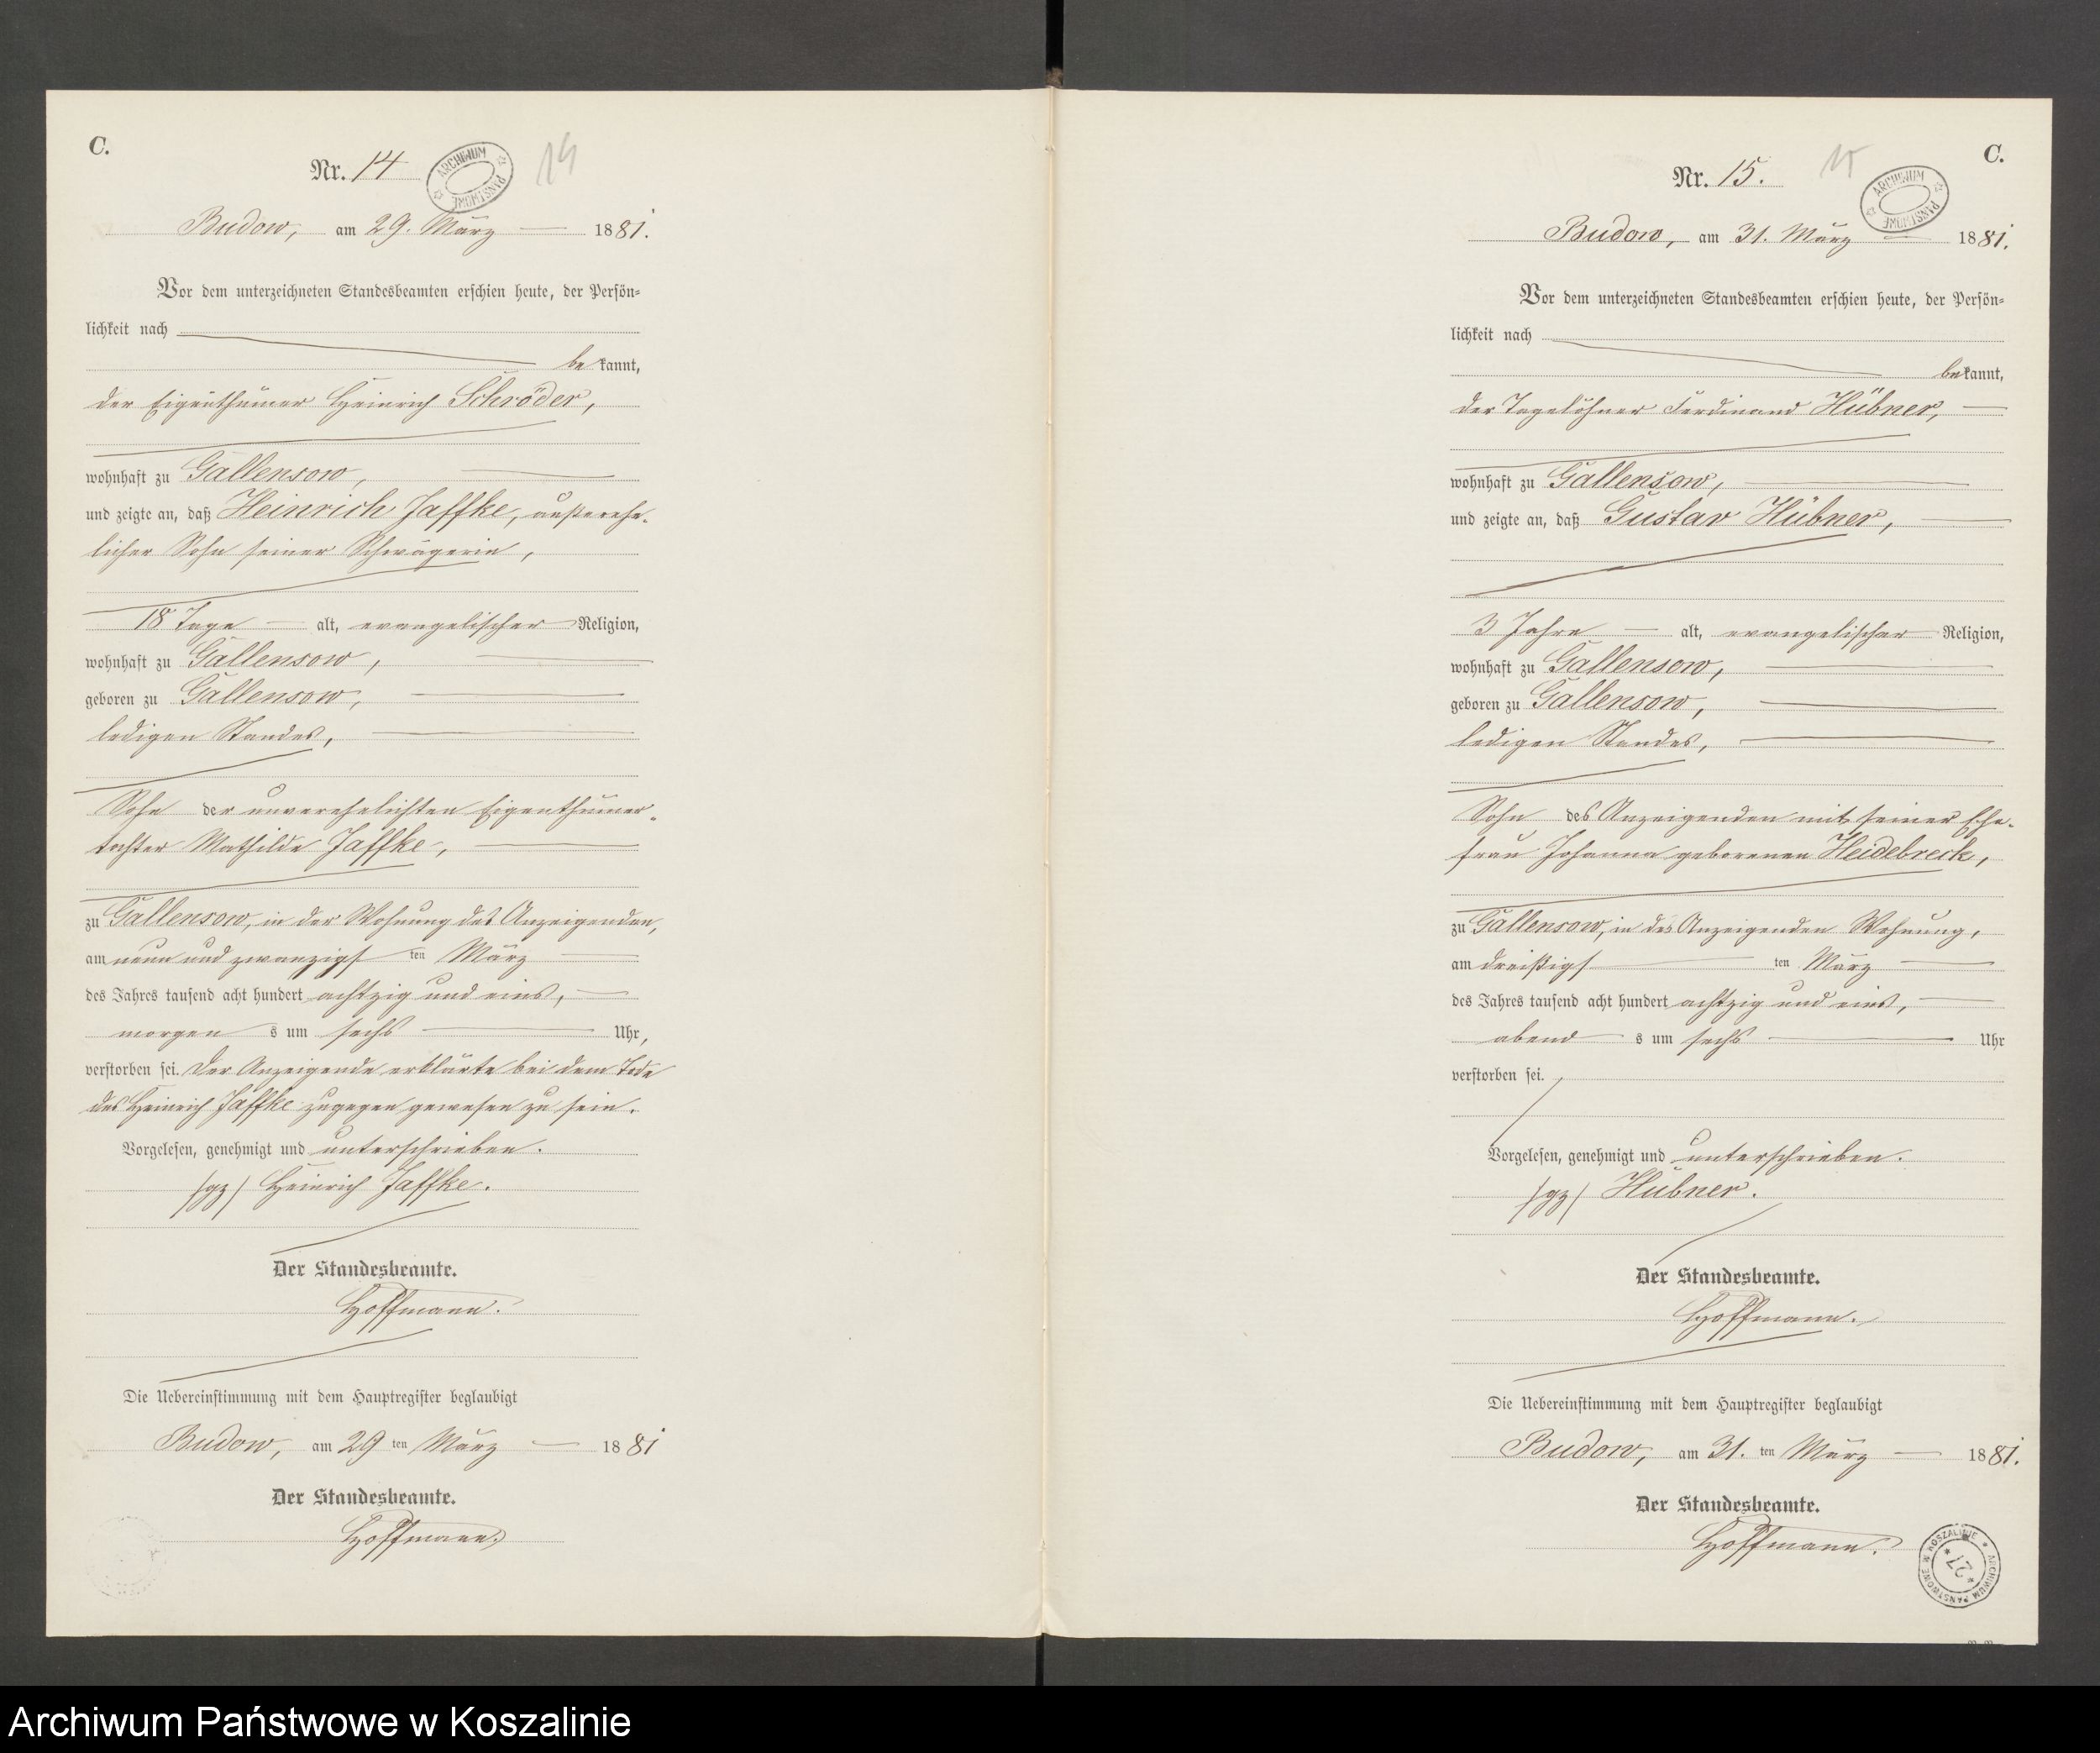 C.
Nr. 14
ARCHIWUM PAŃSTWOWE
14
Budow, am 29. März 1881.
Vor dem unterzeichneten Standesbeamten erschien heute, der Persön=
lichkeit nach
bekannt,
der Eigenthümer Heinrich Schröder,
wohnhaft zu Gallensow,
und zeigte an, daß Heinrich Jaffke, außerehe-
licher Sohn seiner Schwägerin,
18 Tage alt, evangelischer Religion,
wohnhaft zu Gallensow,
geboren zu Gallensow,
ledigen Standes,
Sohn der unverehelichten Eigenthümer-
tochter Mathilde Jaffke,
zu Gallensow, in der Wohnung des Anzeigenden,
am neun und zwanzigsten März
des Jahres tausend acht hundert achtzig und eins,
morgens um sechs Uhr,
verstorben sei. Der Anzeigende erklärte bei dem Tode
des Heinrich Jaffke zugegen gewesen zu sein.
Vorgelesen, genehmigt und unterschrieben.
/gz/ Heinrich Jaffke.
Der Standesbeamte.
Hoffmann.
Die Uebereinstimmung mit dem Hauptregister beglaubigt
Budow, am 29ten März 1881
Der Standesbeamte.
Hoffmann.
C.
Nr. 15.
15
ARCHIWUM PAŃSTWOWE
Budow, am 31. März 1881.
Vor dem unterzeichneten Standesbeamten erschien heute, der Persön=
lichkeit nach
bekannt,
der Tagelöhner Ferdinand Hübner,
wohnhaft zu Gallensow,
und zeigte an, daß Gustav Hübner,
3 Jahre alt, evangelischer Religion,
wohnhaft zu Gallensow,
geboren zu Gallensow,
ledigen Standes,
Sohn des Anzeigenden mit seiner Ehe-
frau Johanna geborenen Heidebreck,
zu Gallensow, in des Anzeigenden Wohnung,
am dreißigsten März
des Jahres tausend acht hundert achtzig und eins,
abends um sechs Uhr
verstorben sei.
Vorgelesen, genehmigt und unterschrieben.
/gz/ Hübner.
Der Standesbeamte.
Hoffmann.
Die Uebereinstimmung mit dem Hauptregister beglaubigt
Budow, am 31.ten März 1881.
Der Standesbeamte.
Hoffmann.
ARCHIWUM PAŃSTWOWE W KOSZALINIE
* 27 *
Archiwum Państwowe w Koszalinie